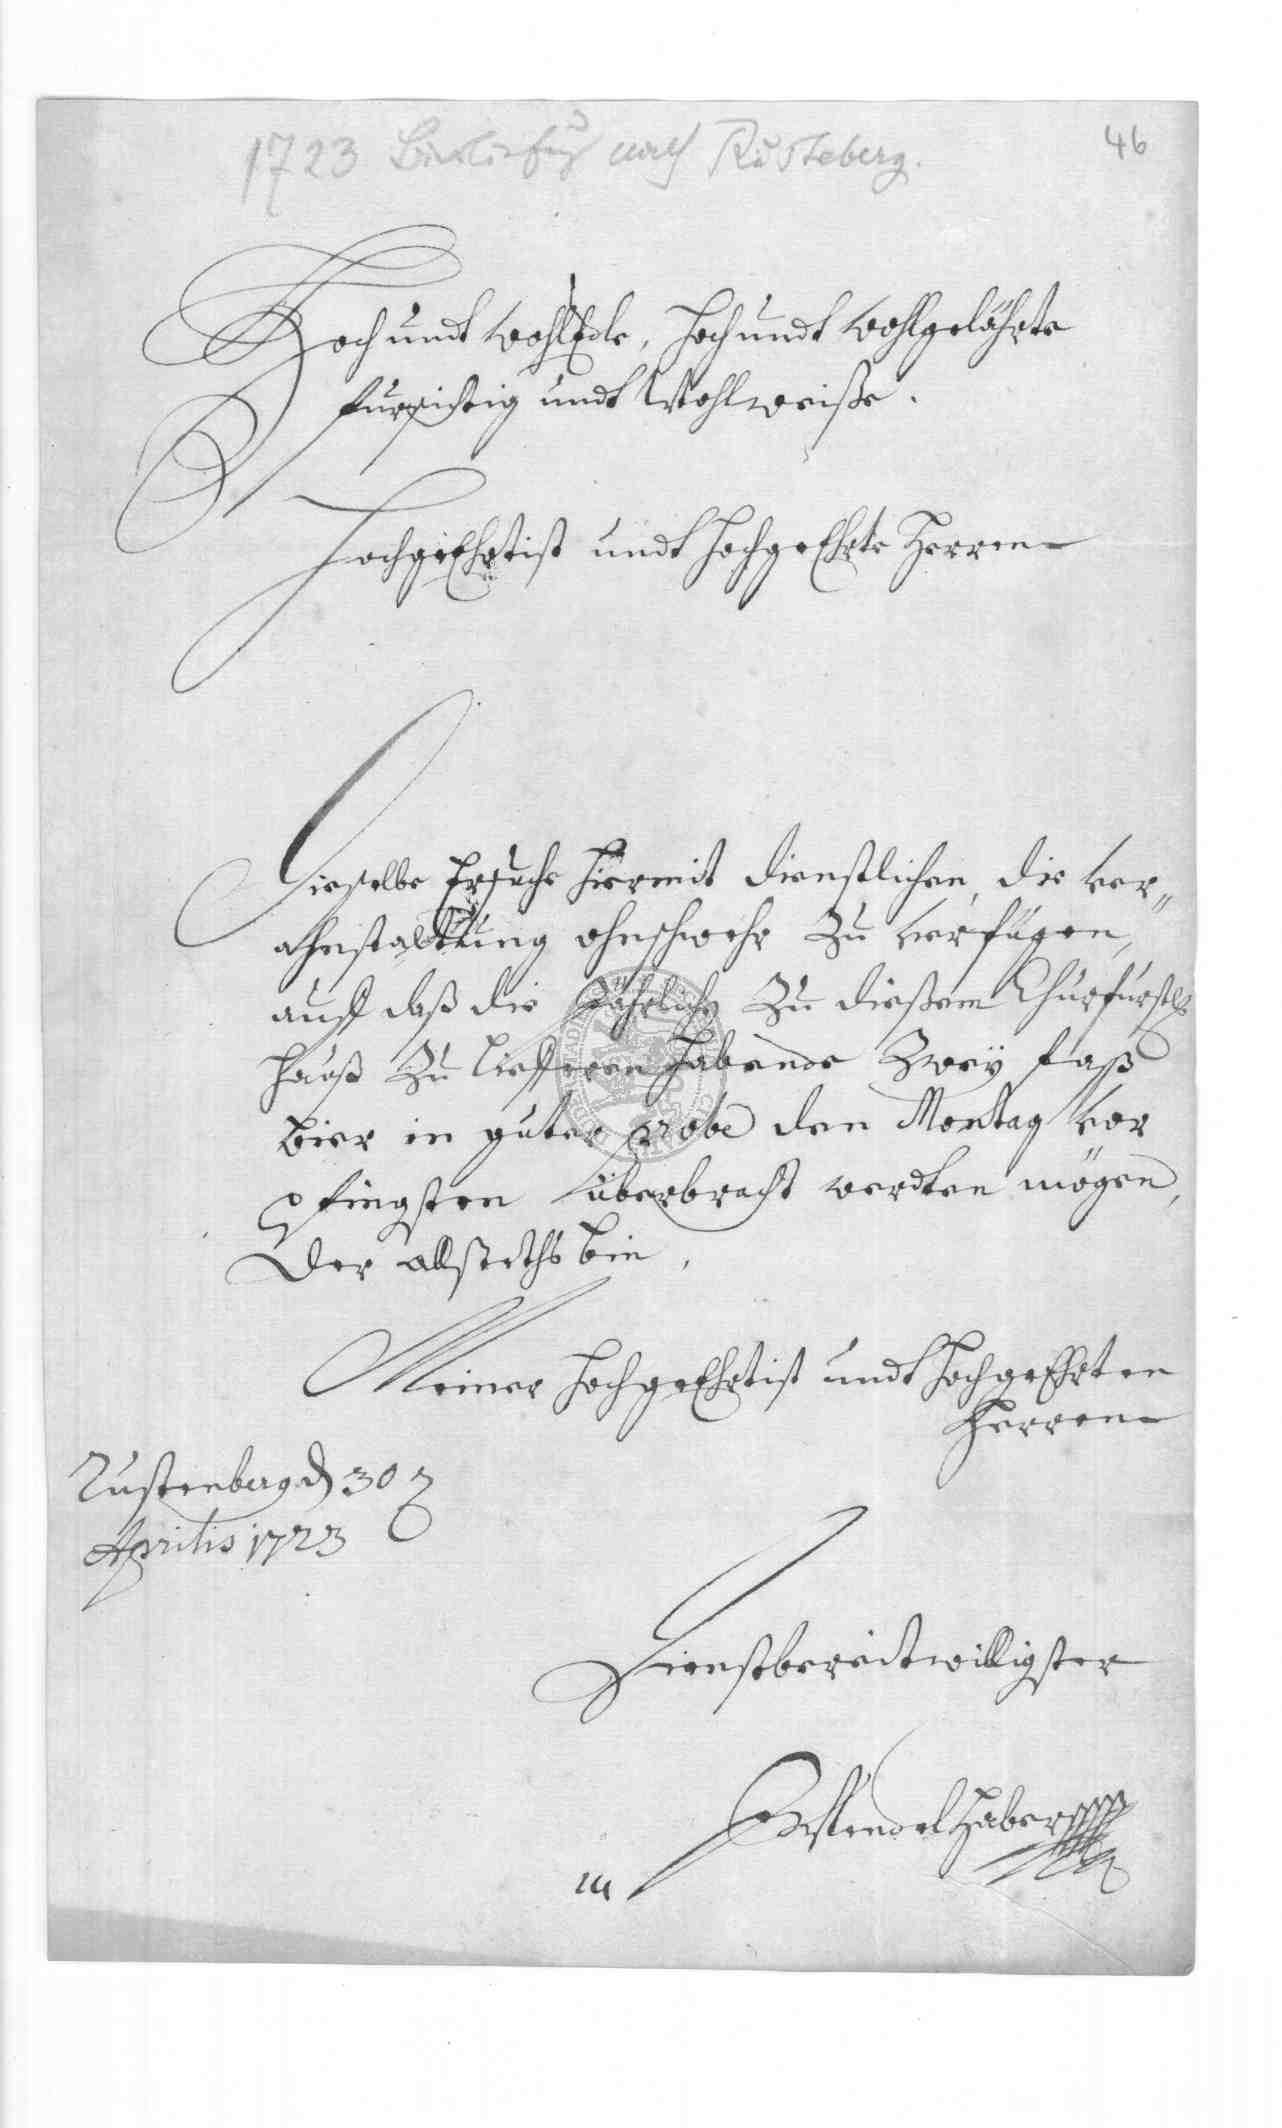 1723 Bierlieferung nach Rusteberg.
46
Hoch undt WohlEdle, hoch undt wohlgelährte
fursichtig undt Wohlweiße.
HochgeEhrtist undt hochgeEhrte Herren
Dieselbe Ersuche hiermit dienstlichen, die ver„
ahnstaltung ohnschwehr zu verfügen,
auff daß die Jährlich zu dießem Churfürstl.
hauß zu liefferen habende zwey faß
bier in guter probe den Montag vor
pfingsten überbracht werdten mögen,
Der allsteths bin,
Meiner hochgeEhrtist undt hochgeEhrten
Herren
Rustenberg d 30
Aprilis 1723
Dienstbereitwilligster